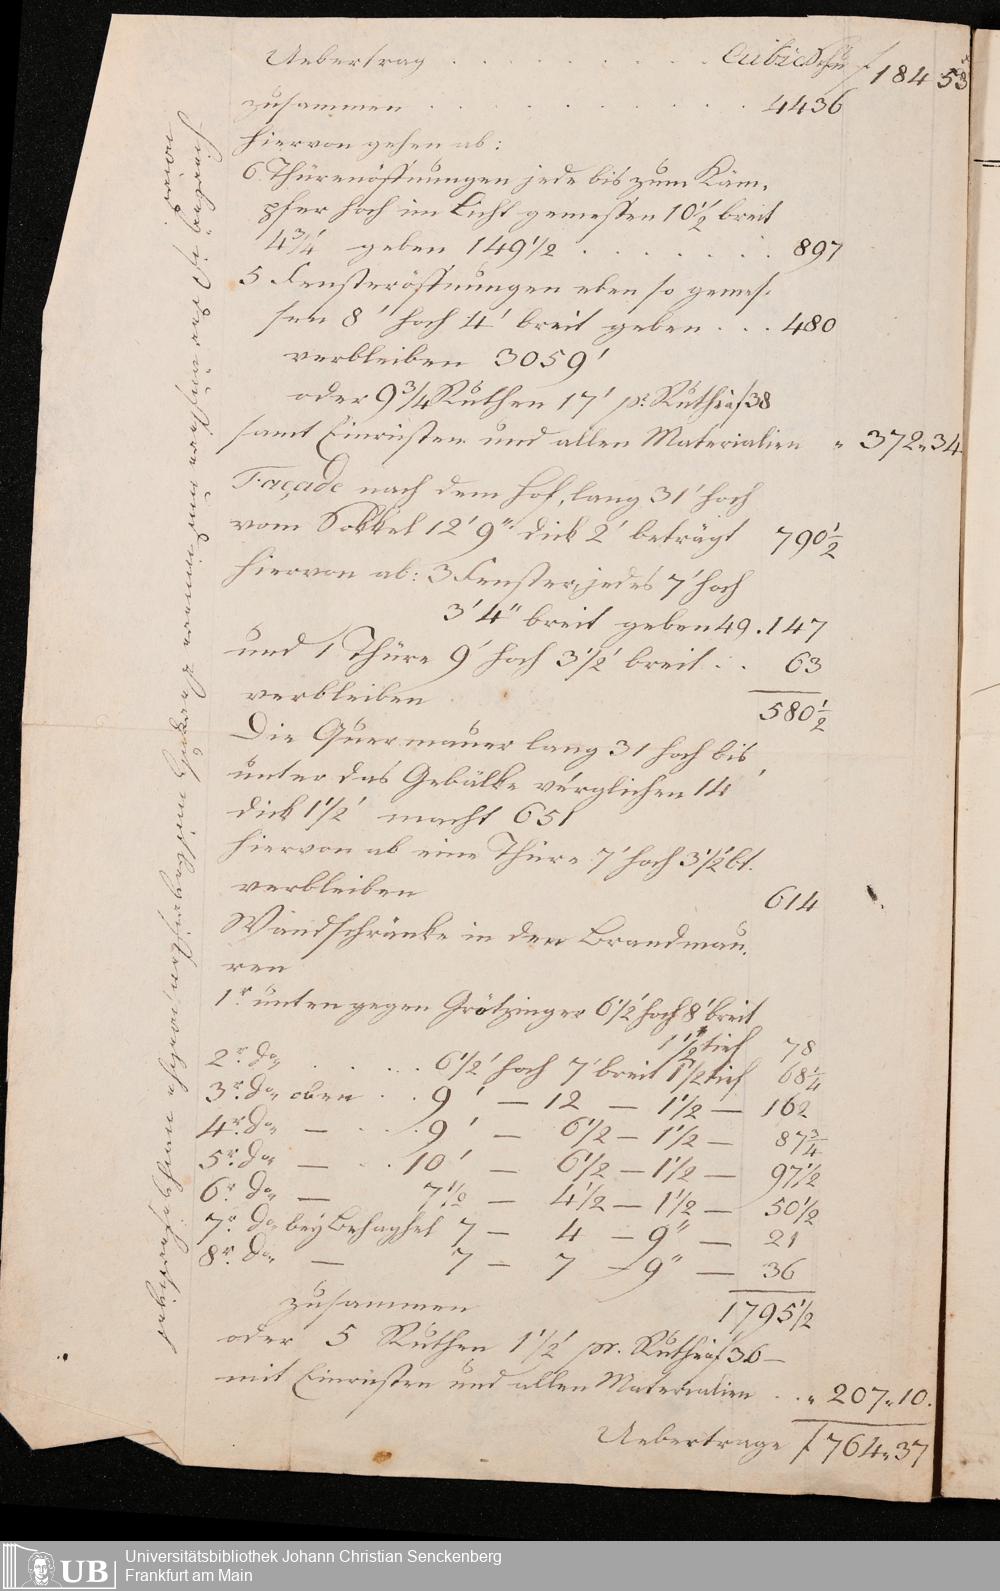 Uebertrag . . . . . . . . . CubicSchu f 184 53
zusammen . . . . . . . . . . 4436
hiervon gehen ab:
6 Thürenöffnungen jede bis zum Käm-
pfer hoch im Licht gemessen 10 1/2' breit
4 3/4' geben 149 1/2 . . . . . . . 897
5 Fensteröffnungen eben so gemes-
sen 8' hoch 4' breit geben . . . 480
verbleiben 3059'
oder 9 3/4 Ruthen 17' pr. Ruthe a f 38
samt Einrüsten und allen Materialien " 372 " 34
Façade nach dem Hof, lang 31' hoch
vom Sokkel 12' 9" dick 2' beträgt 790 1/2
hiervon ab: 3 Fenster, jedes 7' hoch
3' 4" breit geben 49 . 147
und 1 Thüre 9' hoch 3 1/2' breit . . 63
verbleiben 580 1/2
Die Quermauer lang 31 hoch bis
unter das Gebälke verglichen 14'
dick 1 1/2' macht 651
hiervon ab eine Thüre 7' hoch 3 1/2' bt.
verbleiben 614
Wandschränke in den Brandmau-
ren
1r. unten gegen Grötzinger 6 1/2' hoch 8' breit
1 1/2 tief 78
2r. do. . . . . . 6 1/2' hoch 7' breit 1 1/2 tief 68 1/4
3r. do. oben . . 9' — 12 — 1 1/2 — 162
4r. do. — . . 9' — 6 1/2 — 1 1/2 — 87 3/4
5r. do. — . . 10' — 6 1/2 — 1 1/2 — 97 1/2
6r. do. — 7 1/2 — 4 1/2 — 1 1/2 — 50 1/2
7r. do. bey Behaghel 7 — 4 — 9" — 21
8r. do. — 7 — 7 — 9" — 36
zusammen 1795 1/2
oder 5 Ruthen 1 1/2' pr. Ruthe a f 36 —
mit Einrüsten und allen Materialien . . " 207 " 10.
Uebertrage f 764 " 37
Hierbey ist der äußere und innere
UB
Universitätsbibliothek Johann Christian Senckenberg
Frankfurt am Main